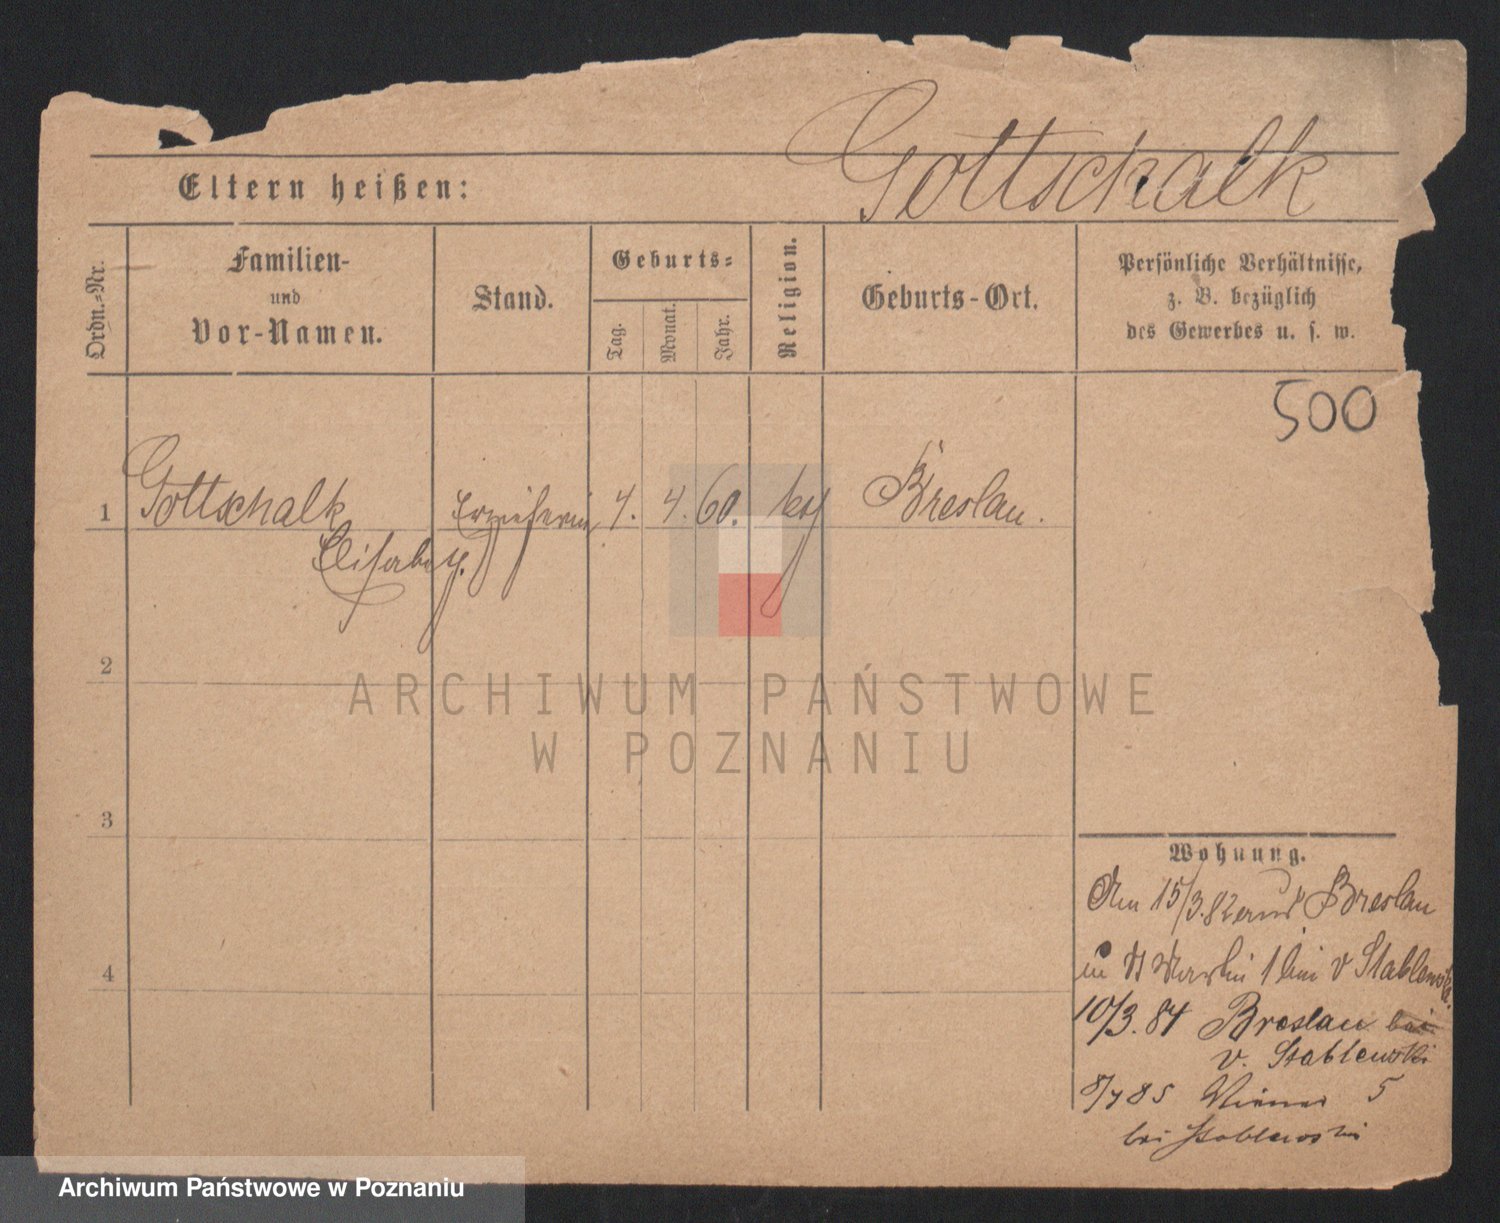 Gottschalk
Eltern heißen:
Ordn.-Nr.
Familien-
und
Vor-Namen.
Stand.
Geburts-
Tag.
Monat.
Jahr.
Religion.
Geburts-Ort.
Persönliche Verhältnisse,
z. B. bezüglich
des Gewerbes u. s. w.
500
1 Gottschalk Erzieherin 4. 60. Breslau.
Elisabeth.
2
3
4
ARCHIWUM PAŃSTWOWE
W POZNANIU
Wohnung.
Am 15/3.82 Breslau
in St Martin 1 bei v Stablewski
10/3.84 Breslau bei
v. Stablewski
85 5
bei Stablewski
Archiwum Państwowe w Poznaniu